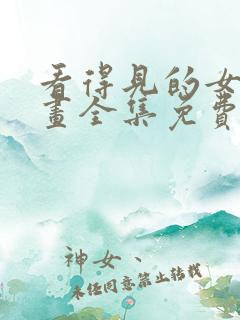 看得见的女
畫全集免費
神女、
未经同意禁止转载